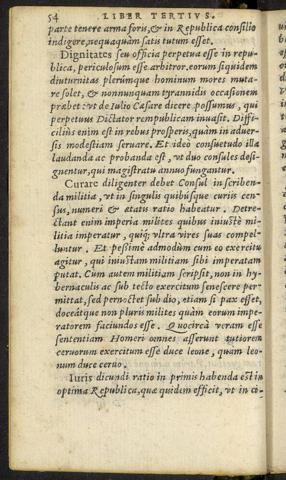 54 LIBER TERTIVS.
parte tenere arma foris, & in Republica consilio
indigere, nequaquàm satis tutum esset.
Dignitates seu officia perpetua esse in repu-
blica, periculosum esse arbitror. eorum siquidem
diuturnitas plerúmque hominum mores muta-
re solet, & nonnunquam tyrannidis occasionem
præbet: vt de Iulio Cæsare dicere possumus, qui
perpetuus Dictator rempublicam inuasit. Diffi-
ciliùs enim est in rebus prosperis, quàm in aduer-
sis modestiam seruare. Et ideò consuetudo illa
laudanda ac probanda est, vt duo consules desi-
gnentur, qui magistratu annuo fungantur.
Curare diligenter debet Consul in scriben-
da militia, vt in singulis quibúsque curiis cen-
sus, numeri & ætatis ratio habeatur. Detre-
ctant enim imperia milites quibus iniustè mi-
litia imperatur, quíq; vltra vires suas compel-
luntur. Et pessimè admodùm cum eo exercitu
agitur, qui iniustam militiam sibi imperatam
putat. Cum autem militiam scripsit, non in hy-
bernaculis ac sub tecto exercitum senescere per-
mittat, sed pernoctet sub dio, etiam si pax esset,
doceátque non pluris milites quàm eorum impe-
ratorem faciundos esse. Quocircà veram esse
sententiam Homeri omnes asserunt tutiorem
ceruorum exercitum esse duce leone, quàm leo-
num duce ceruo.
Iuris dicundi ratio in primis habenda est in
optima Republica, quæ quidem efficit, vt in ci-